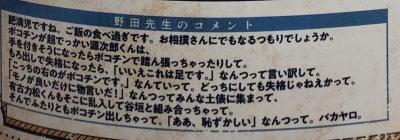 野田先生のコメント
肥満児ですね。ご飯の食べ過ぎです。お相撲さんにでもなるつもりでしょうか。
ボコチンが超でっかい源次郎くんは、
手を付きそうになったらボコチンで踏ん張っちゃったりして。
もろ出しで失格になったら、「いいえこれは足です。」なんつって言い訳して。
「こっちの右のがボコチンです」なんていって。どっちにしても失格じゃねえかって。
「モノが良いだけに物言いだ!」なんつってみんな土俵に集まって、
有古力松くんもそこに乱入して谷垣と組み合っちゃって。
そんでふたりともボコチン出しちゃって。「ああ、恥ずかしい」なんつって、バカヤロ。